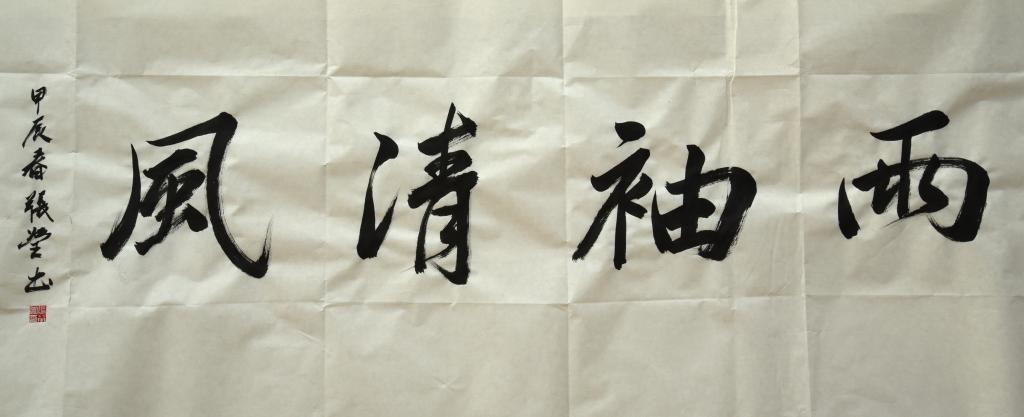 兩袖清風
甲辰春張瑩书